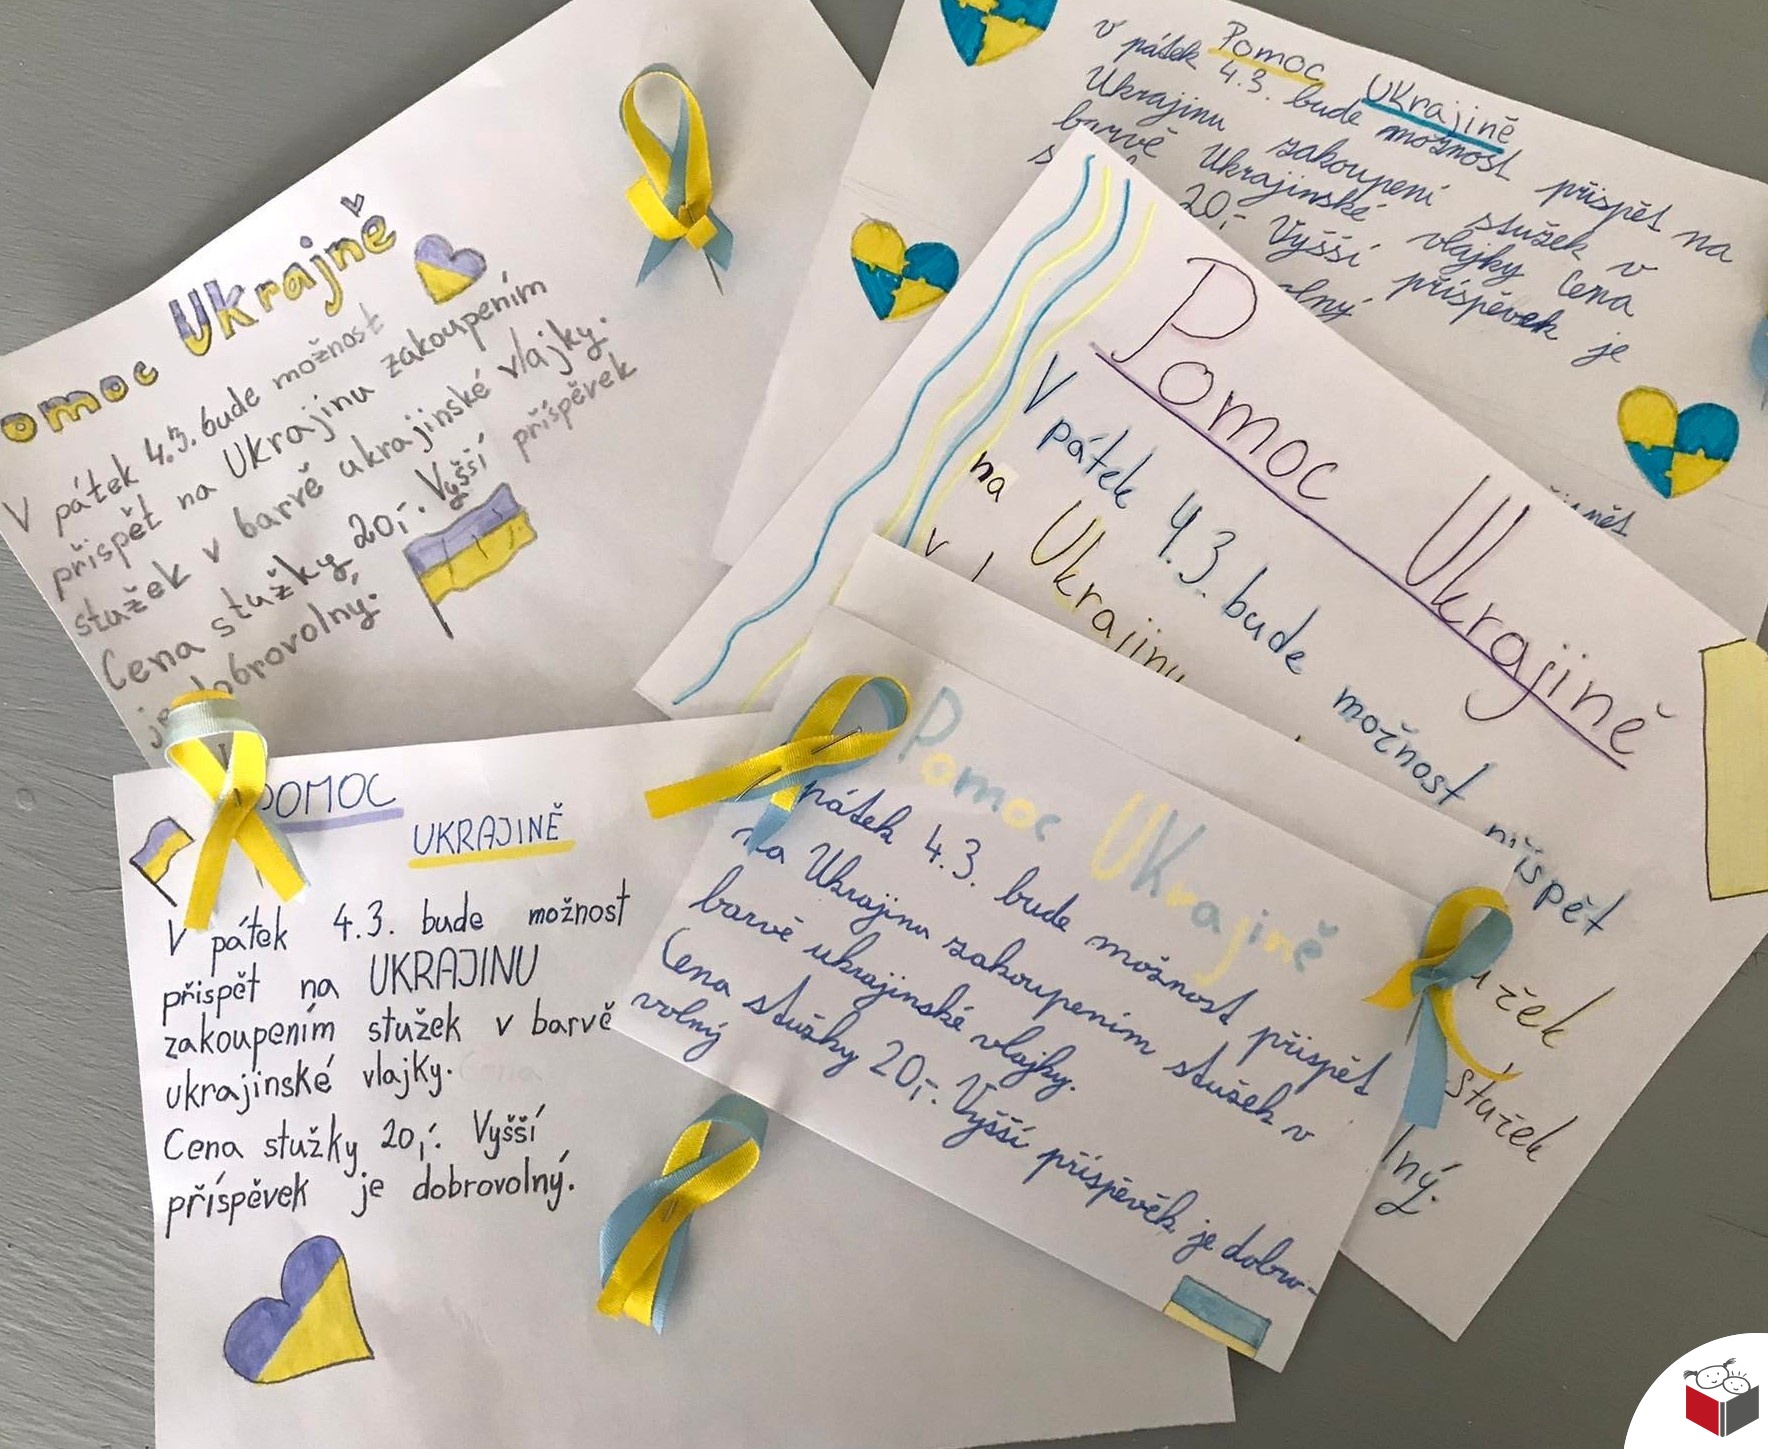 omoc Ukrajně
V pátek 4.3. bude možnost
přispět na Ukrajinu zakoupením
stužek v barvě ukrajinské vlajky.
Cena stužky 20,-. Vyšší příspěvek
je dobrovolný.
Pomoc Ukrajině
v pátek 4.3. bude možnost přispět na
Ukrajinu zakoupení stužek v
barvě Ukrajinské vlajky Cena
20,- Vyšší příspěvek je
Pomoc Ukrajině
V pátek 4.3. bude možnost
na Ukrajinu
stužek
lný.
POMOC
UKRAJINĚ
V pátek 4.3. bude možnost
přispět na UKRAJINU
zakoupením stužek v barvě
ukrajinské vlajky.
Cena stužky 20,-. Vyšší
příspěvek je dobrovolný.
Pomoc Ukrajině
pátek 4.3. bude možnost přispět
na Ukrajinu zakoupením stužek v
barvě ukrajinské vlajky.
Cena stužky 20,-. Vyšší příspěvěk je dobro-
volný